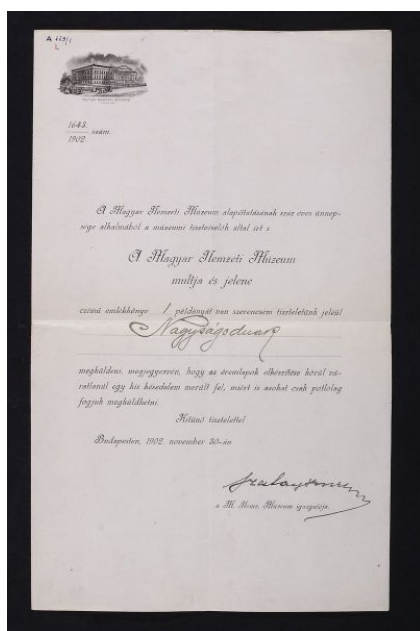 A
L
MAGYAR NEMZETI MÚZEUM
1643.
1902. szám.
A Magyar Nemzeti Múzeum alapíttatásának száz éves ünnep-
sége alkalmából a múzeumi tisztviselők által írt s
A Magyar Nemzeti Múzeum
multja és jelene
czímű emlékkönyv 1 példányát van szerencsém tiszteletünk jeléül
Nagyságodnak
megküldeni, megjegyezvén, hogy az éremlapok elkészítése körül vá-
ratlanúl egy kis késedelem merült fel, miért is azokat csak pótlólag
fogjuk megküldhetni.
Kitünő tisztelettel
Budapesten, 1902. november 30-án
Szalay Imre
a M. Nemz. Múzeum igazgatója.